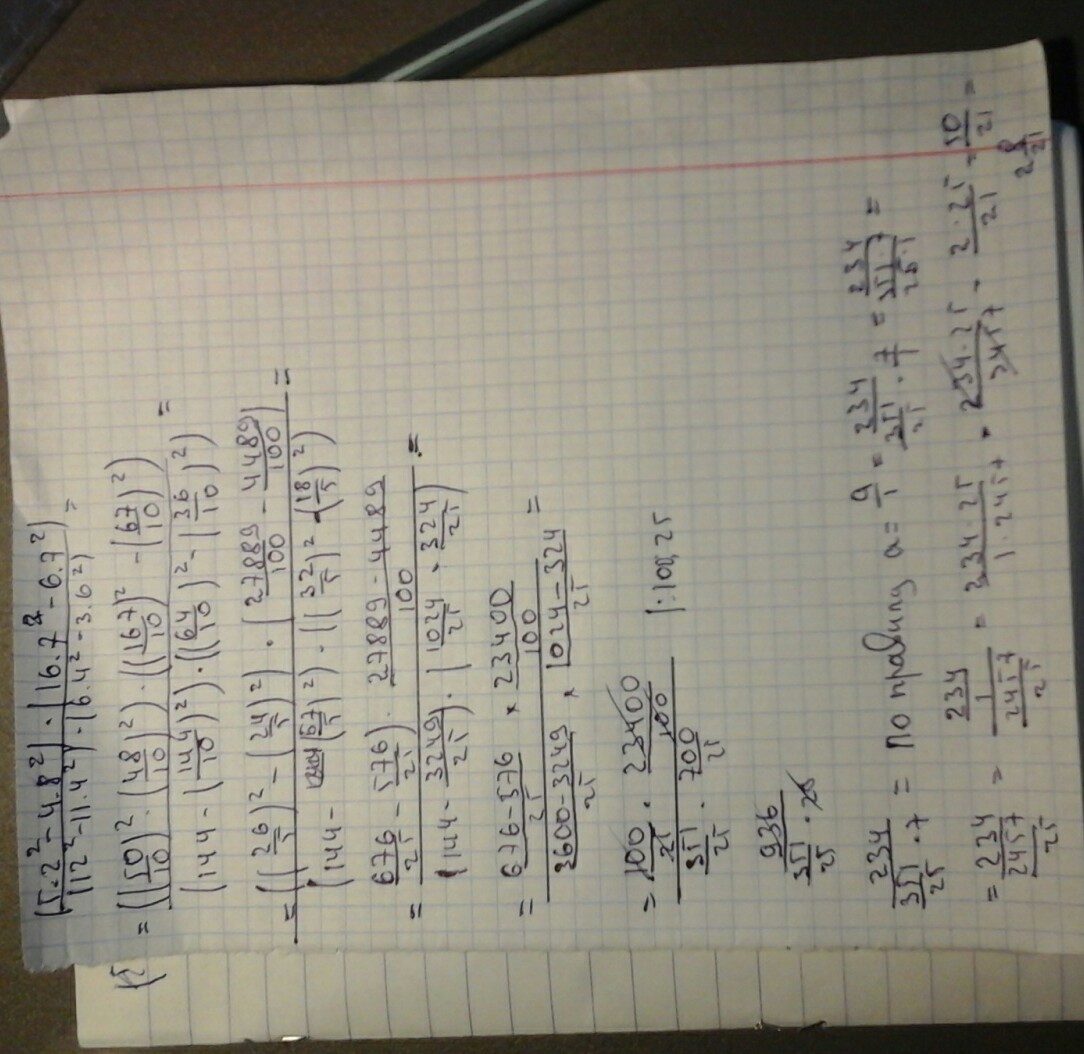 (5.2² - 4.8²) · (16.7² - 6.7²) / (12² - 11.4²) · (6.4² - 3.6²) =
= ((50/10)² · (48/10)²) · ((167/10)² - (67/10)²) / (144 - (144/10)²) · ((64/10)² - (36/10)²) =
= ((26/5)² - (24/5)²) · (27889/100 - 4489/100) / (144 - (67/5)²) · ((32/5)² - (18/5)²) =
= 676/25 - 576/25) · 27889 - 4489/100 / (144 - 3249/25) · (1024/25 · 324/25) =
= 676-576/25 × 23400/100 / 3600-3249/25 × 1024-324/25 =
= 100/25 · 23400/100 / 351/25 · 700/25 |:100, 25
936 / 351/25 · 28
234 / 351/25 · 7 = По правилу a = a/1 = 234 / 351/25 · 7/1 = 234 / 351·7/25·1 =
= 234 / 2457/25 = 234/1 / 2457/25 = 234·25/1·2457 = 234·25/2457 = 2·25/21 = 50/21 =
2 8/21